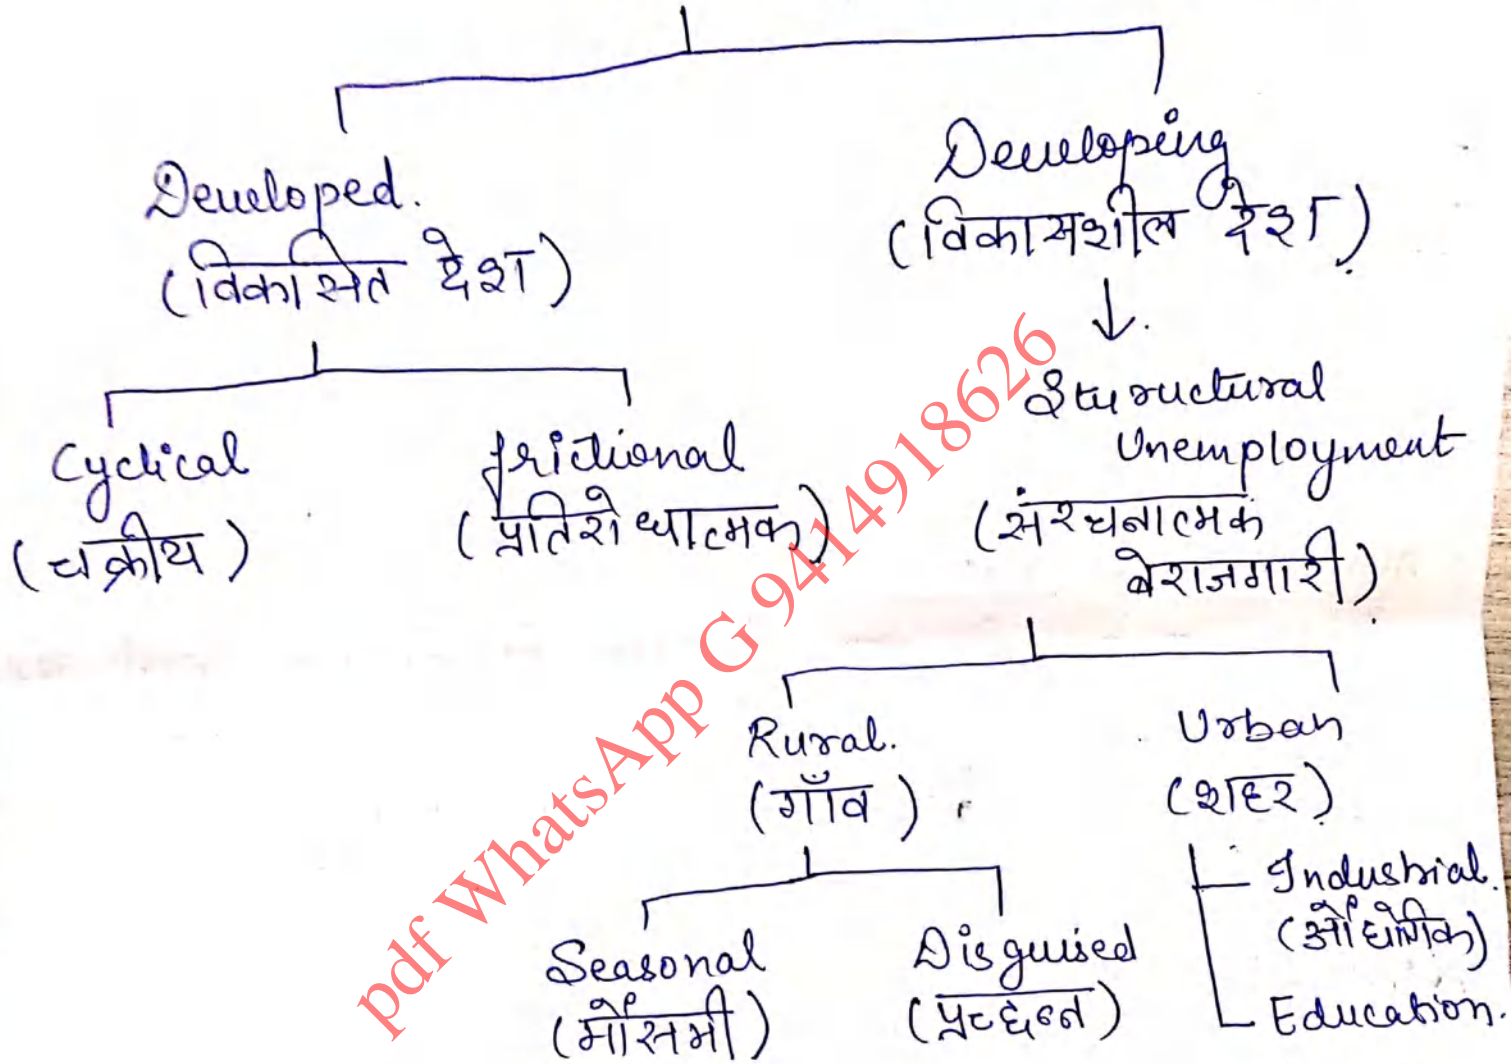 Developed.
(विकासित देश)
Developing
(विकासशील देश)
Cyclical
(चक्रीय)
frictional
(प्रतिरोधात्मक)
Structural
Unemployment
(संरचनात्मक
बेराजगारी)
Rural.
(गाँव)
Urban
(शहर)
Seasonal
(मौसमी)
Disguised
(प्रच्छन्न)
Industrial.
(औद्योगिक)
Education.
pdf WhatsApp G 9414918626